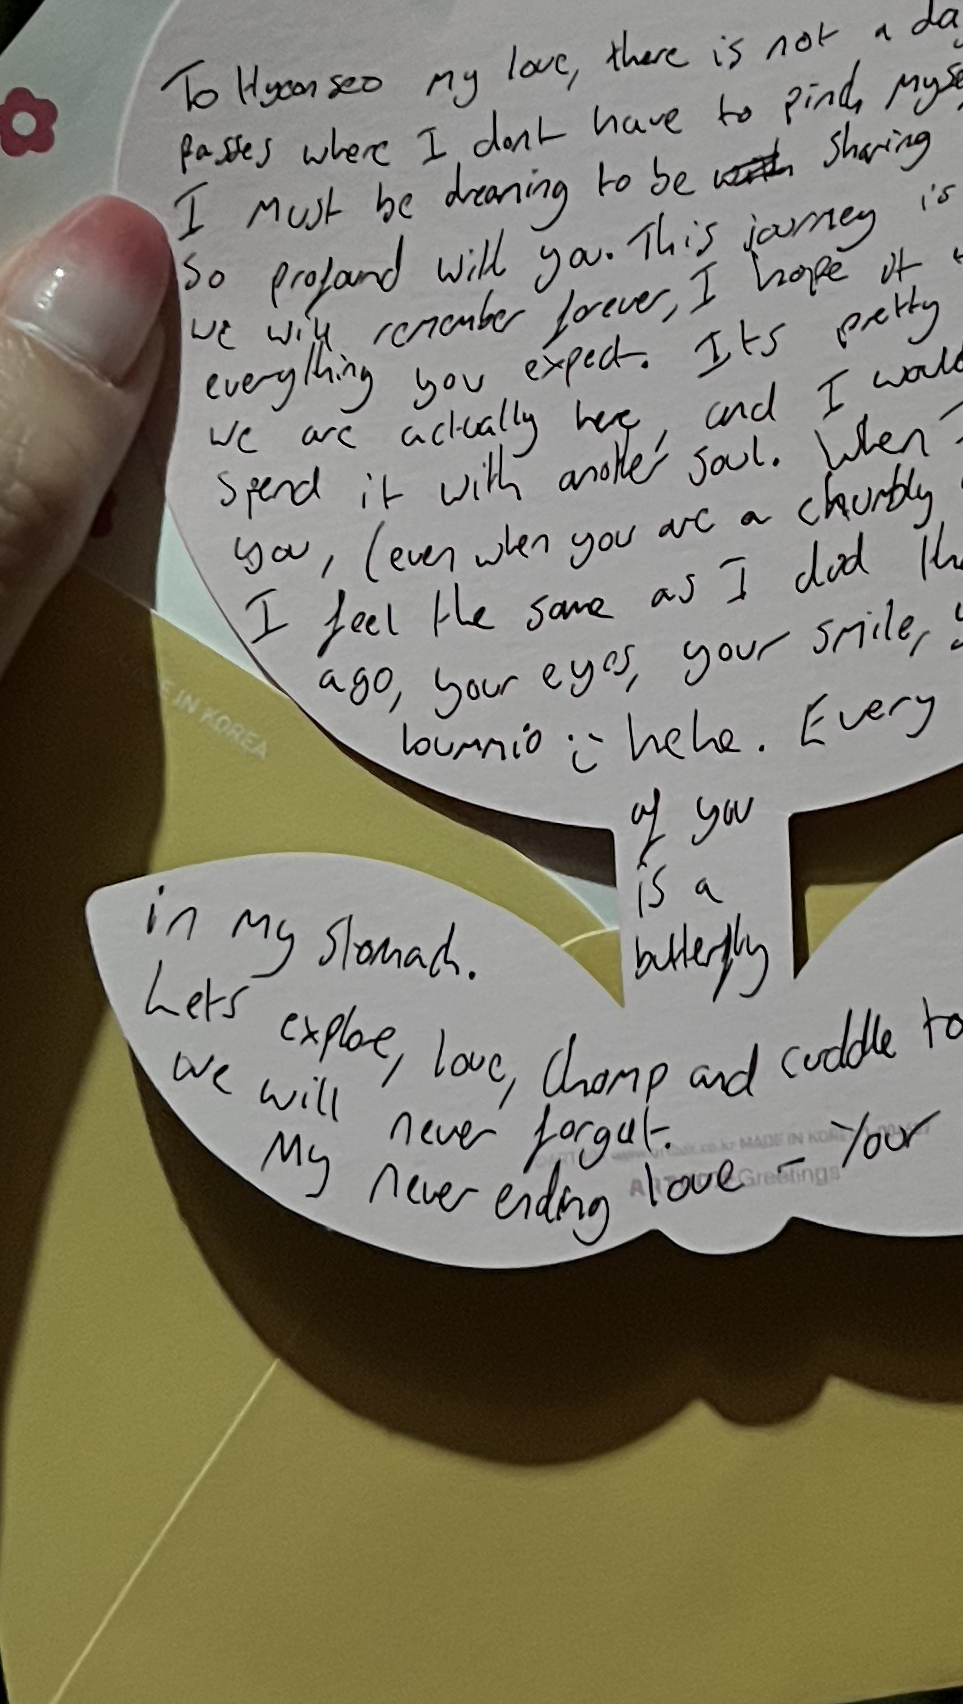 To Hyeonseo my love, there is not a da
passes where I dont have to pinch myse
I must be dreaming to be sharing
So profound with you. This journey is
we will remember forever, I hope it
everything you expect. Its pretty
we are actually here, and I would
spend it with another soul. When I
you, (even when you are a chumbly
I feel the same as I did th
ago, your eyes, your smile, y
hehe. Every
of you
is a
butterfly
in my stomach.
Lets explore, love, chomp and cuddle to
we will never forget.
My never ending love - Your
E IN KOREA
MADE IN KOREA
Greetings